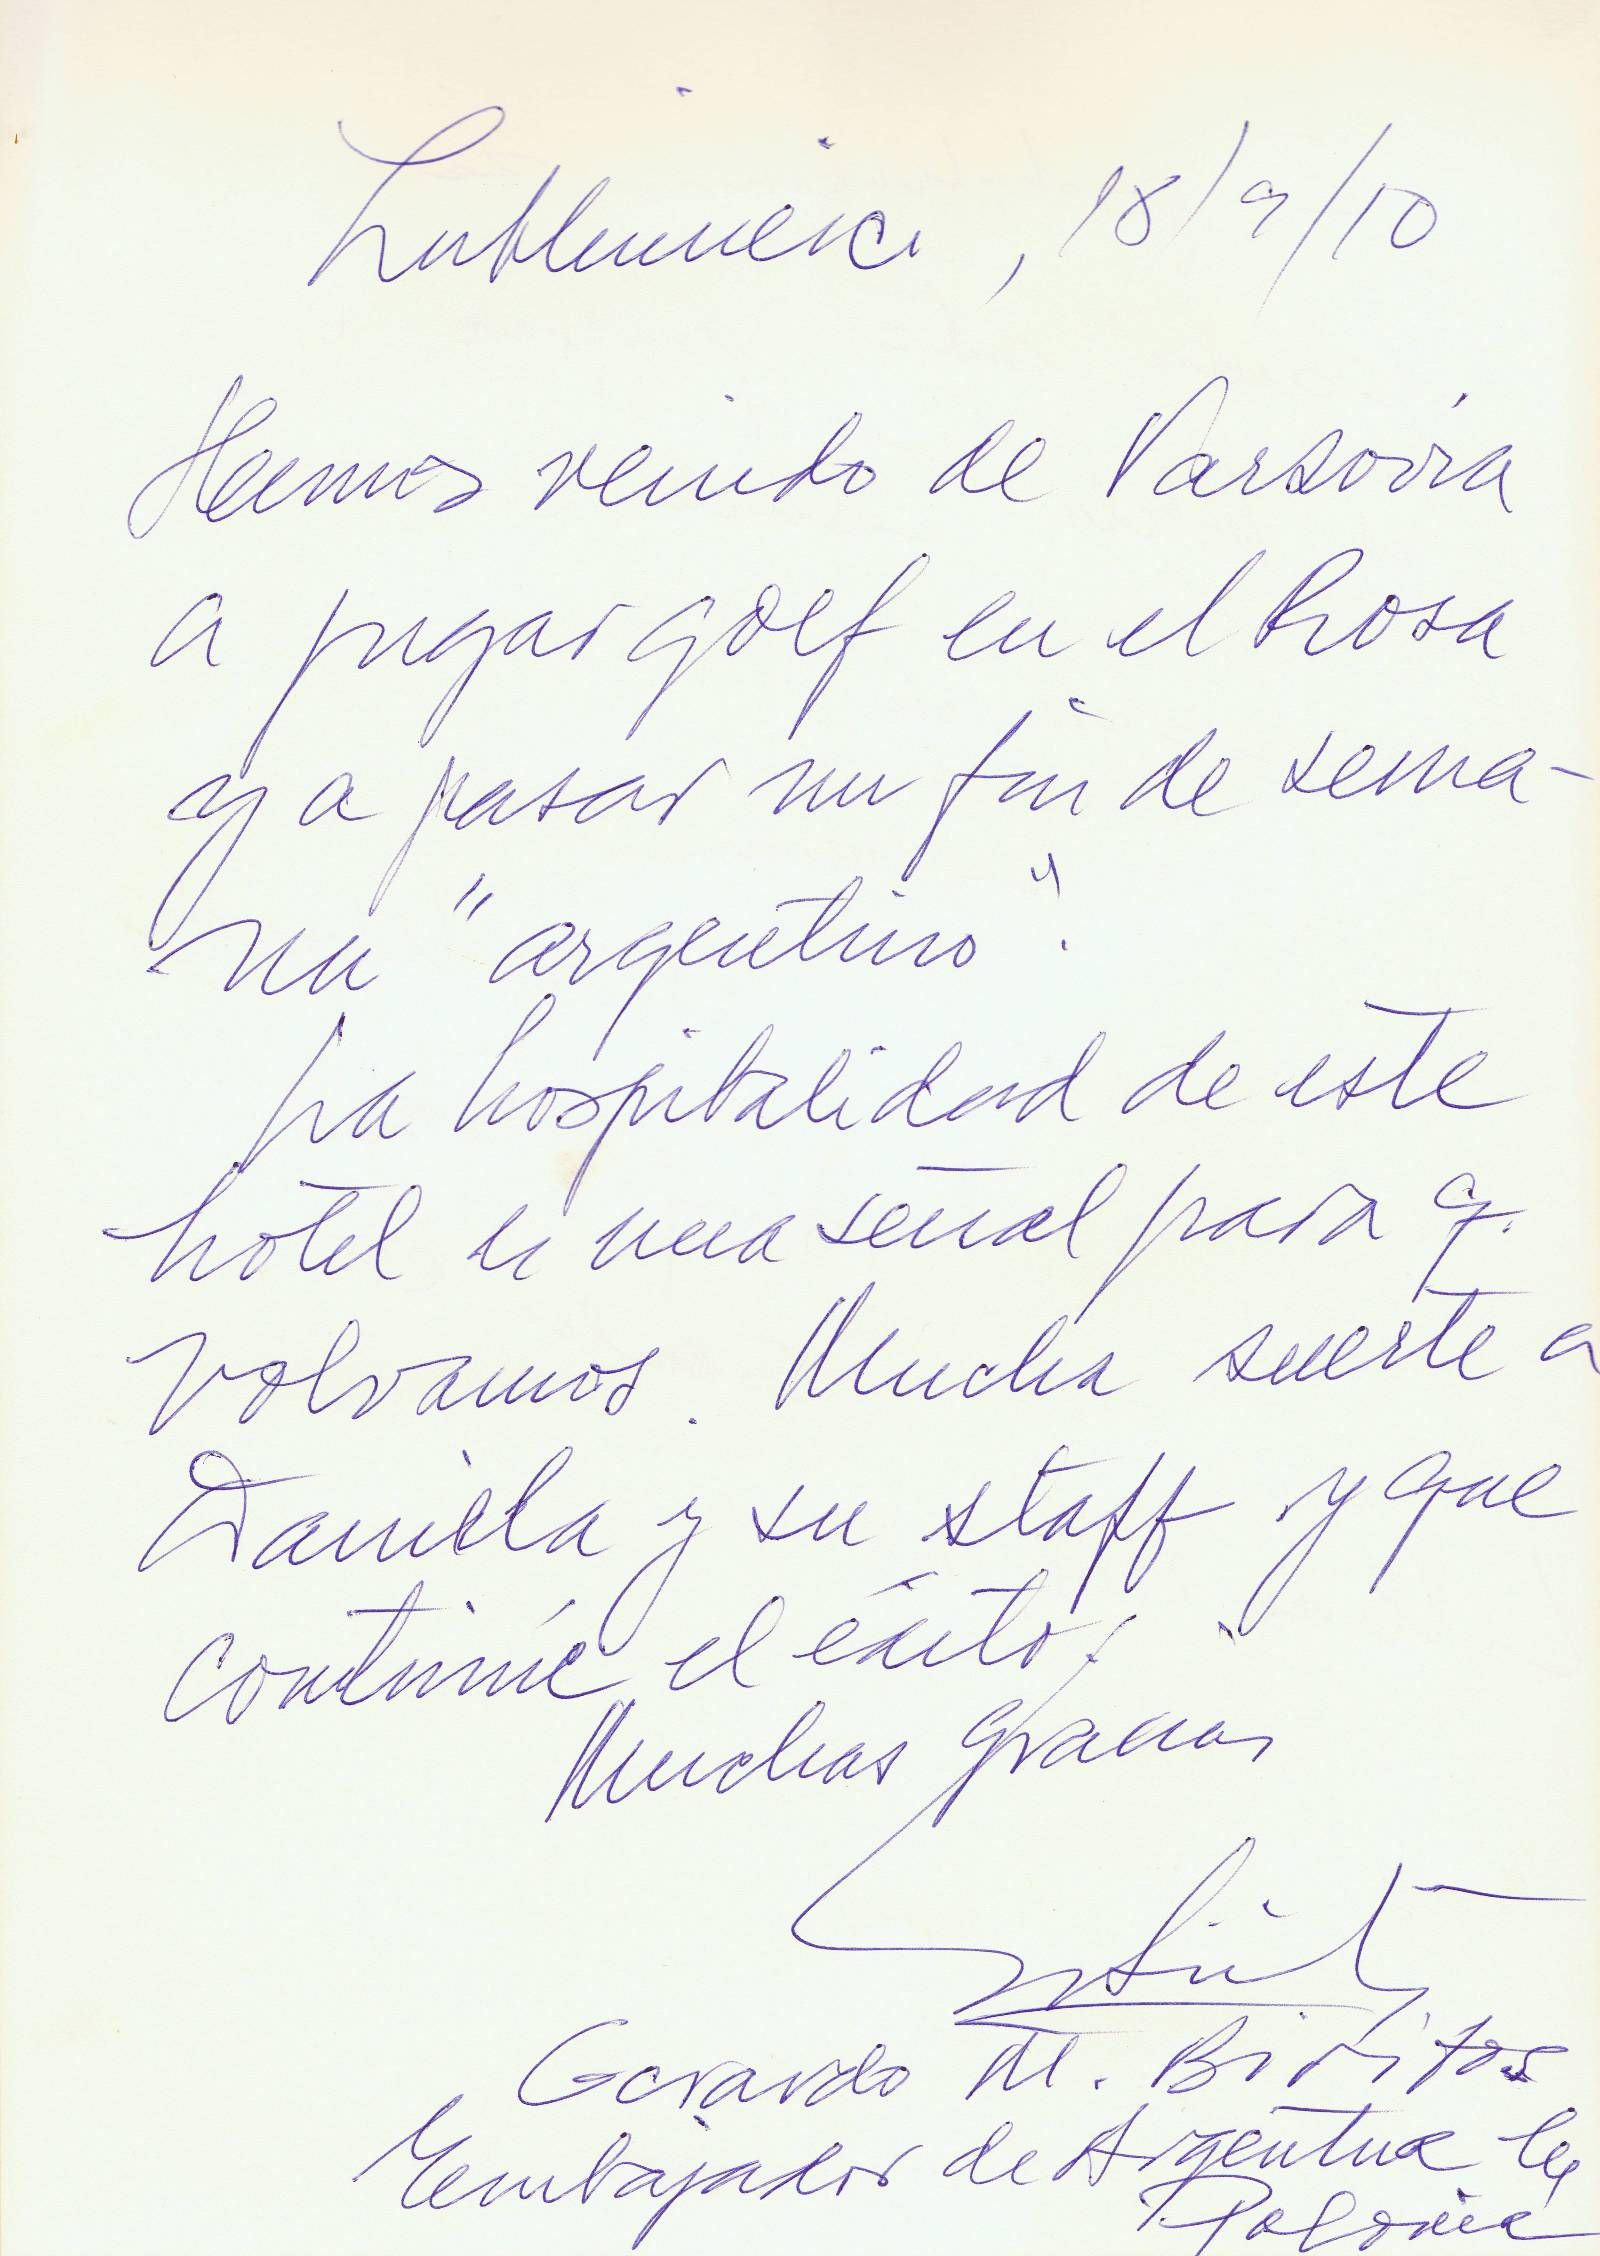 Lubleniecu, 18/9/10
Hemos venido de Varsovia
a jugar golf en el Rosa
y a pasar un fin de sema-
na "argentino".
La hospitalidad de este
hotel es una señal para q.
volvamos. Mucha suerte a
Daniela y su staff y que
continúe el éxito.
Muchas gracias
Gerardo M. Biritos
Embajador de Argentina en
Polonia